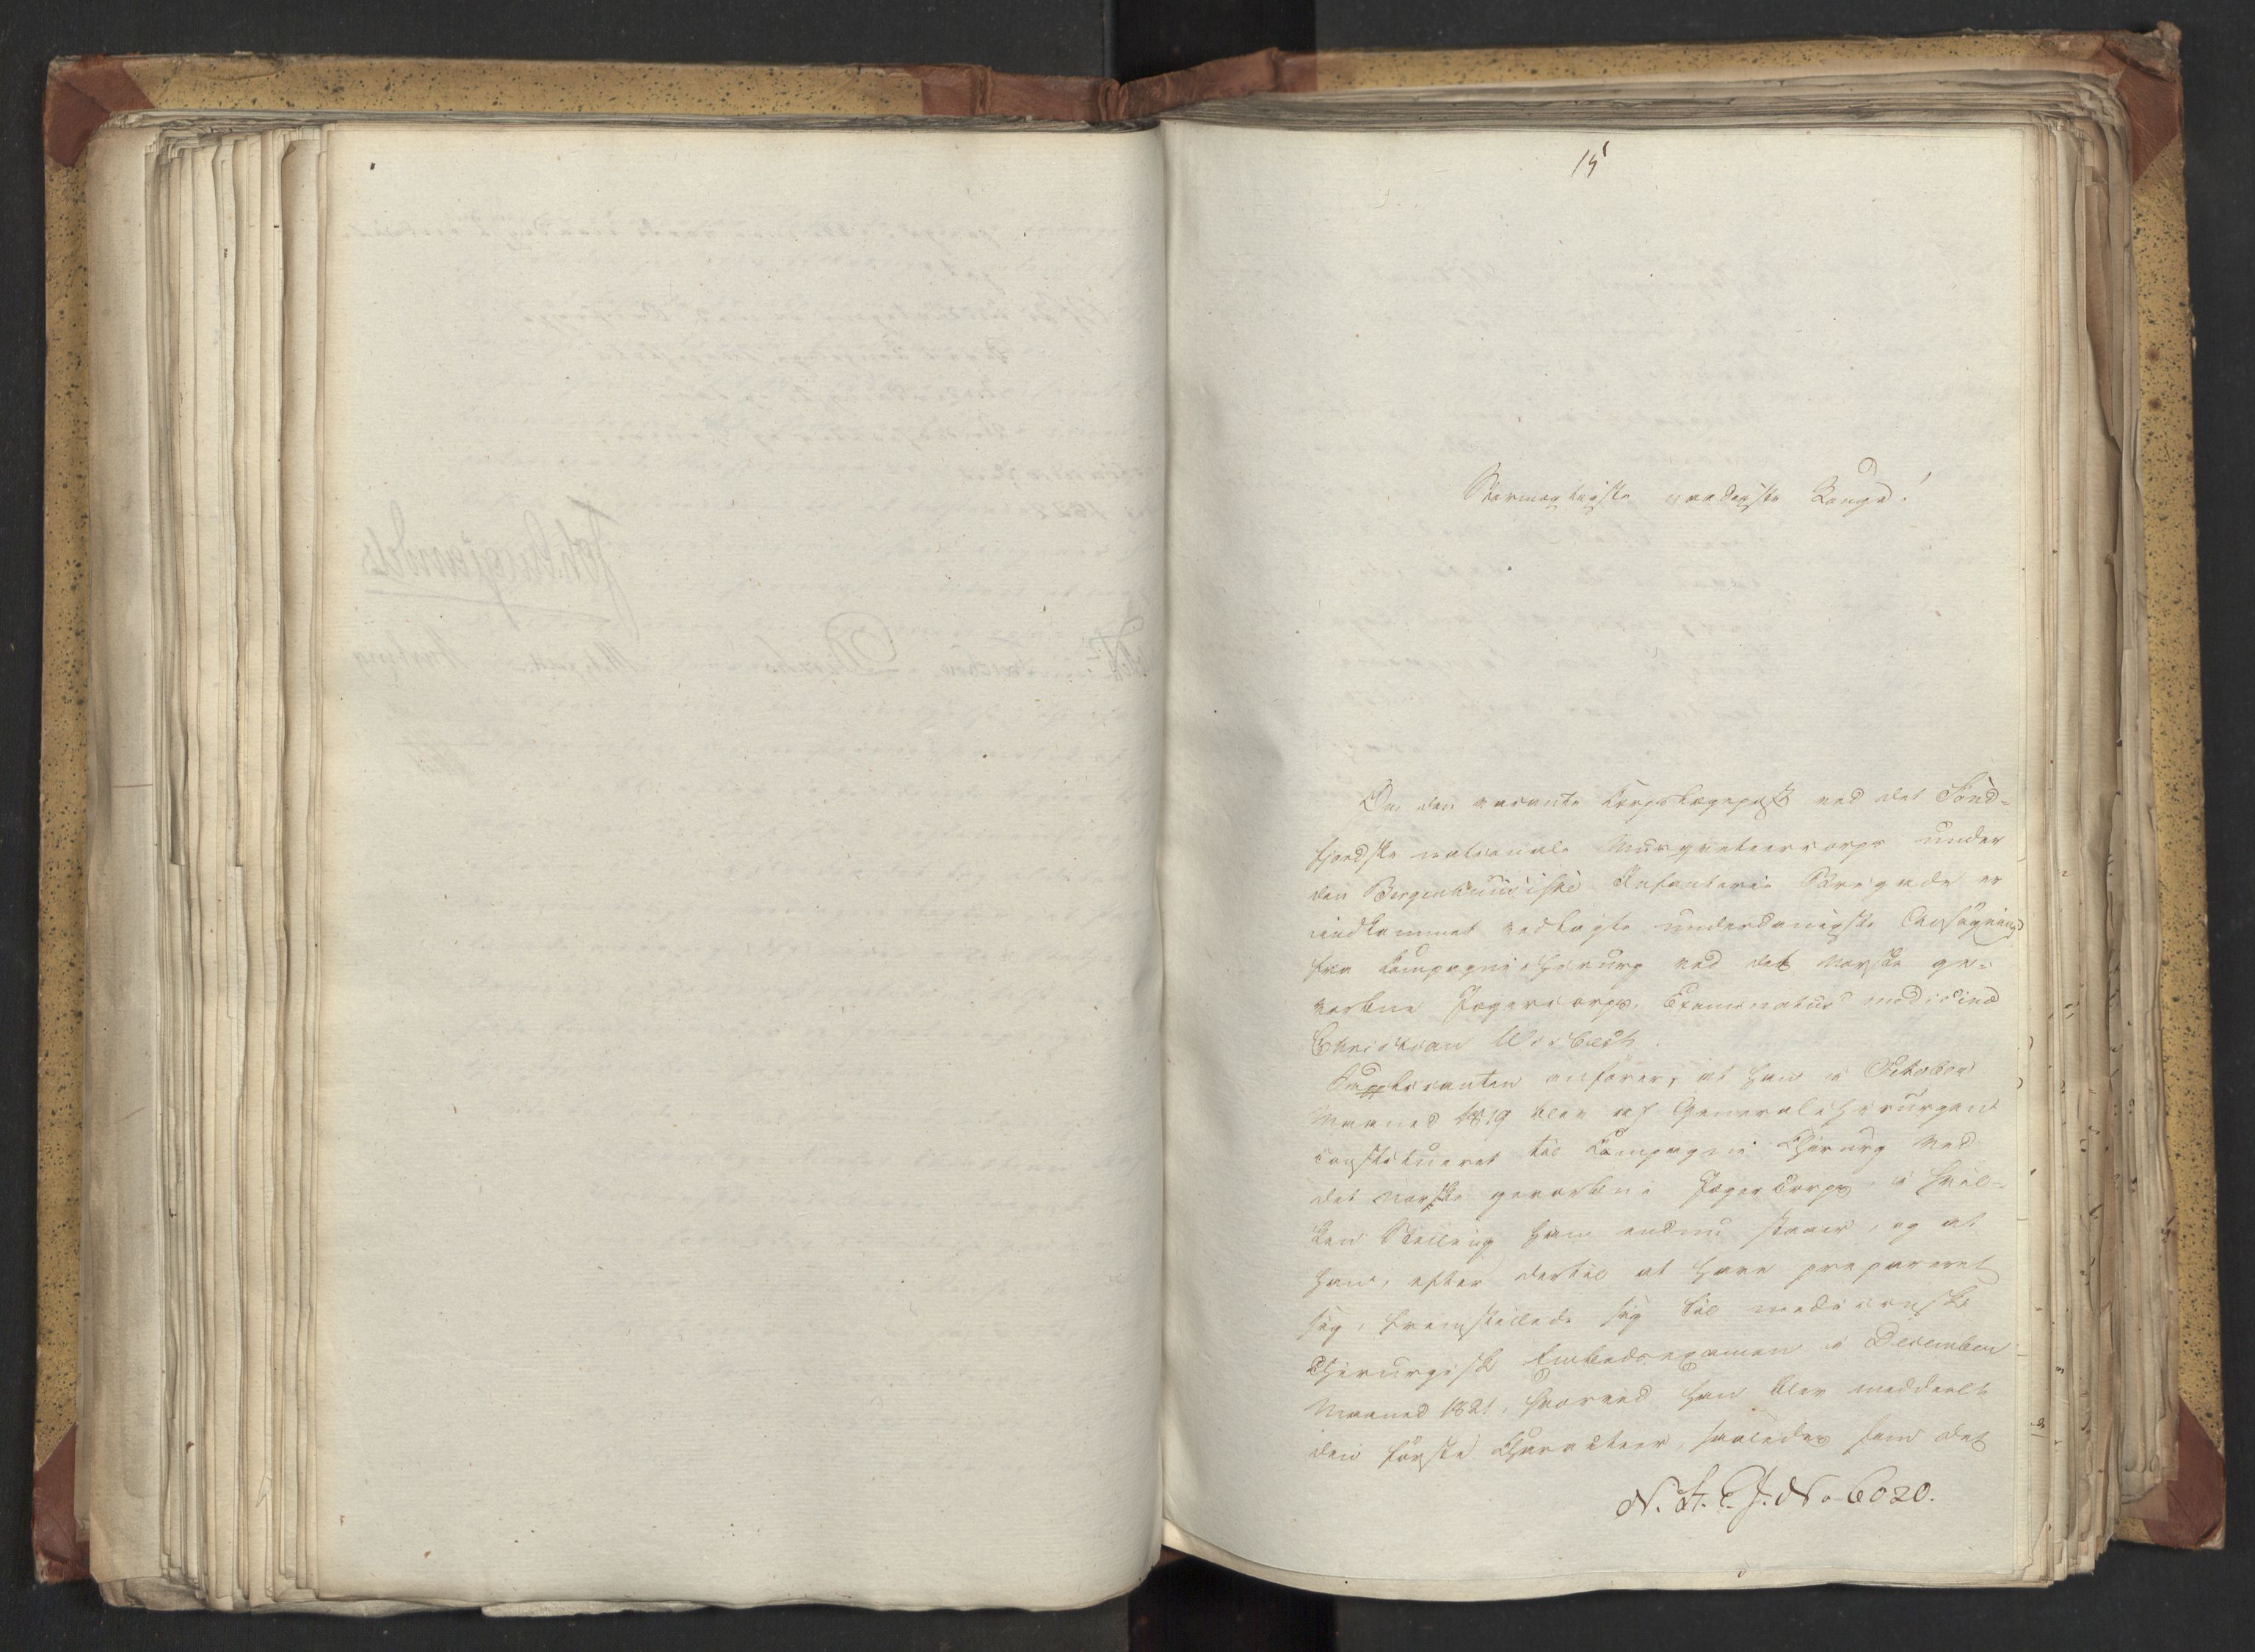 15
Stormægtigste naadigste Konge!
Om den vacante Corpslægepost ved det Sönd-
fjordske nationale Musqueteercorps under
den Bergenhuusiske Infanterie Brigade er
indkommet vedlagte underdanigste Ansögning
fra Compagniechirurg ved det norske ge-
vorbne Jægercorps, Examinatus medicinæ
Christian Wisbech.
Supplicanten anförer, at han i October
Maaned 1819 blev af Generalchirurgen
constitueret til Compagnie Chirurg ved
det norske gevorbne Jægercorps, i hvil-
ken Stilling han endnu staaer, og at
han, efter dertil at have præpareret
sig, fremstillede sig til medicinsk
chirurgisk Embedsexamen i December
Maaned 1821, hvorved han blev meddeelt
den förste Characteer, saaledes som det
N. H. C. J. No 6020.